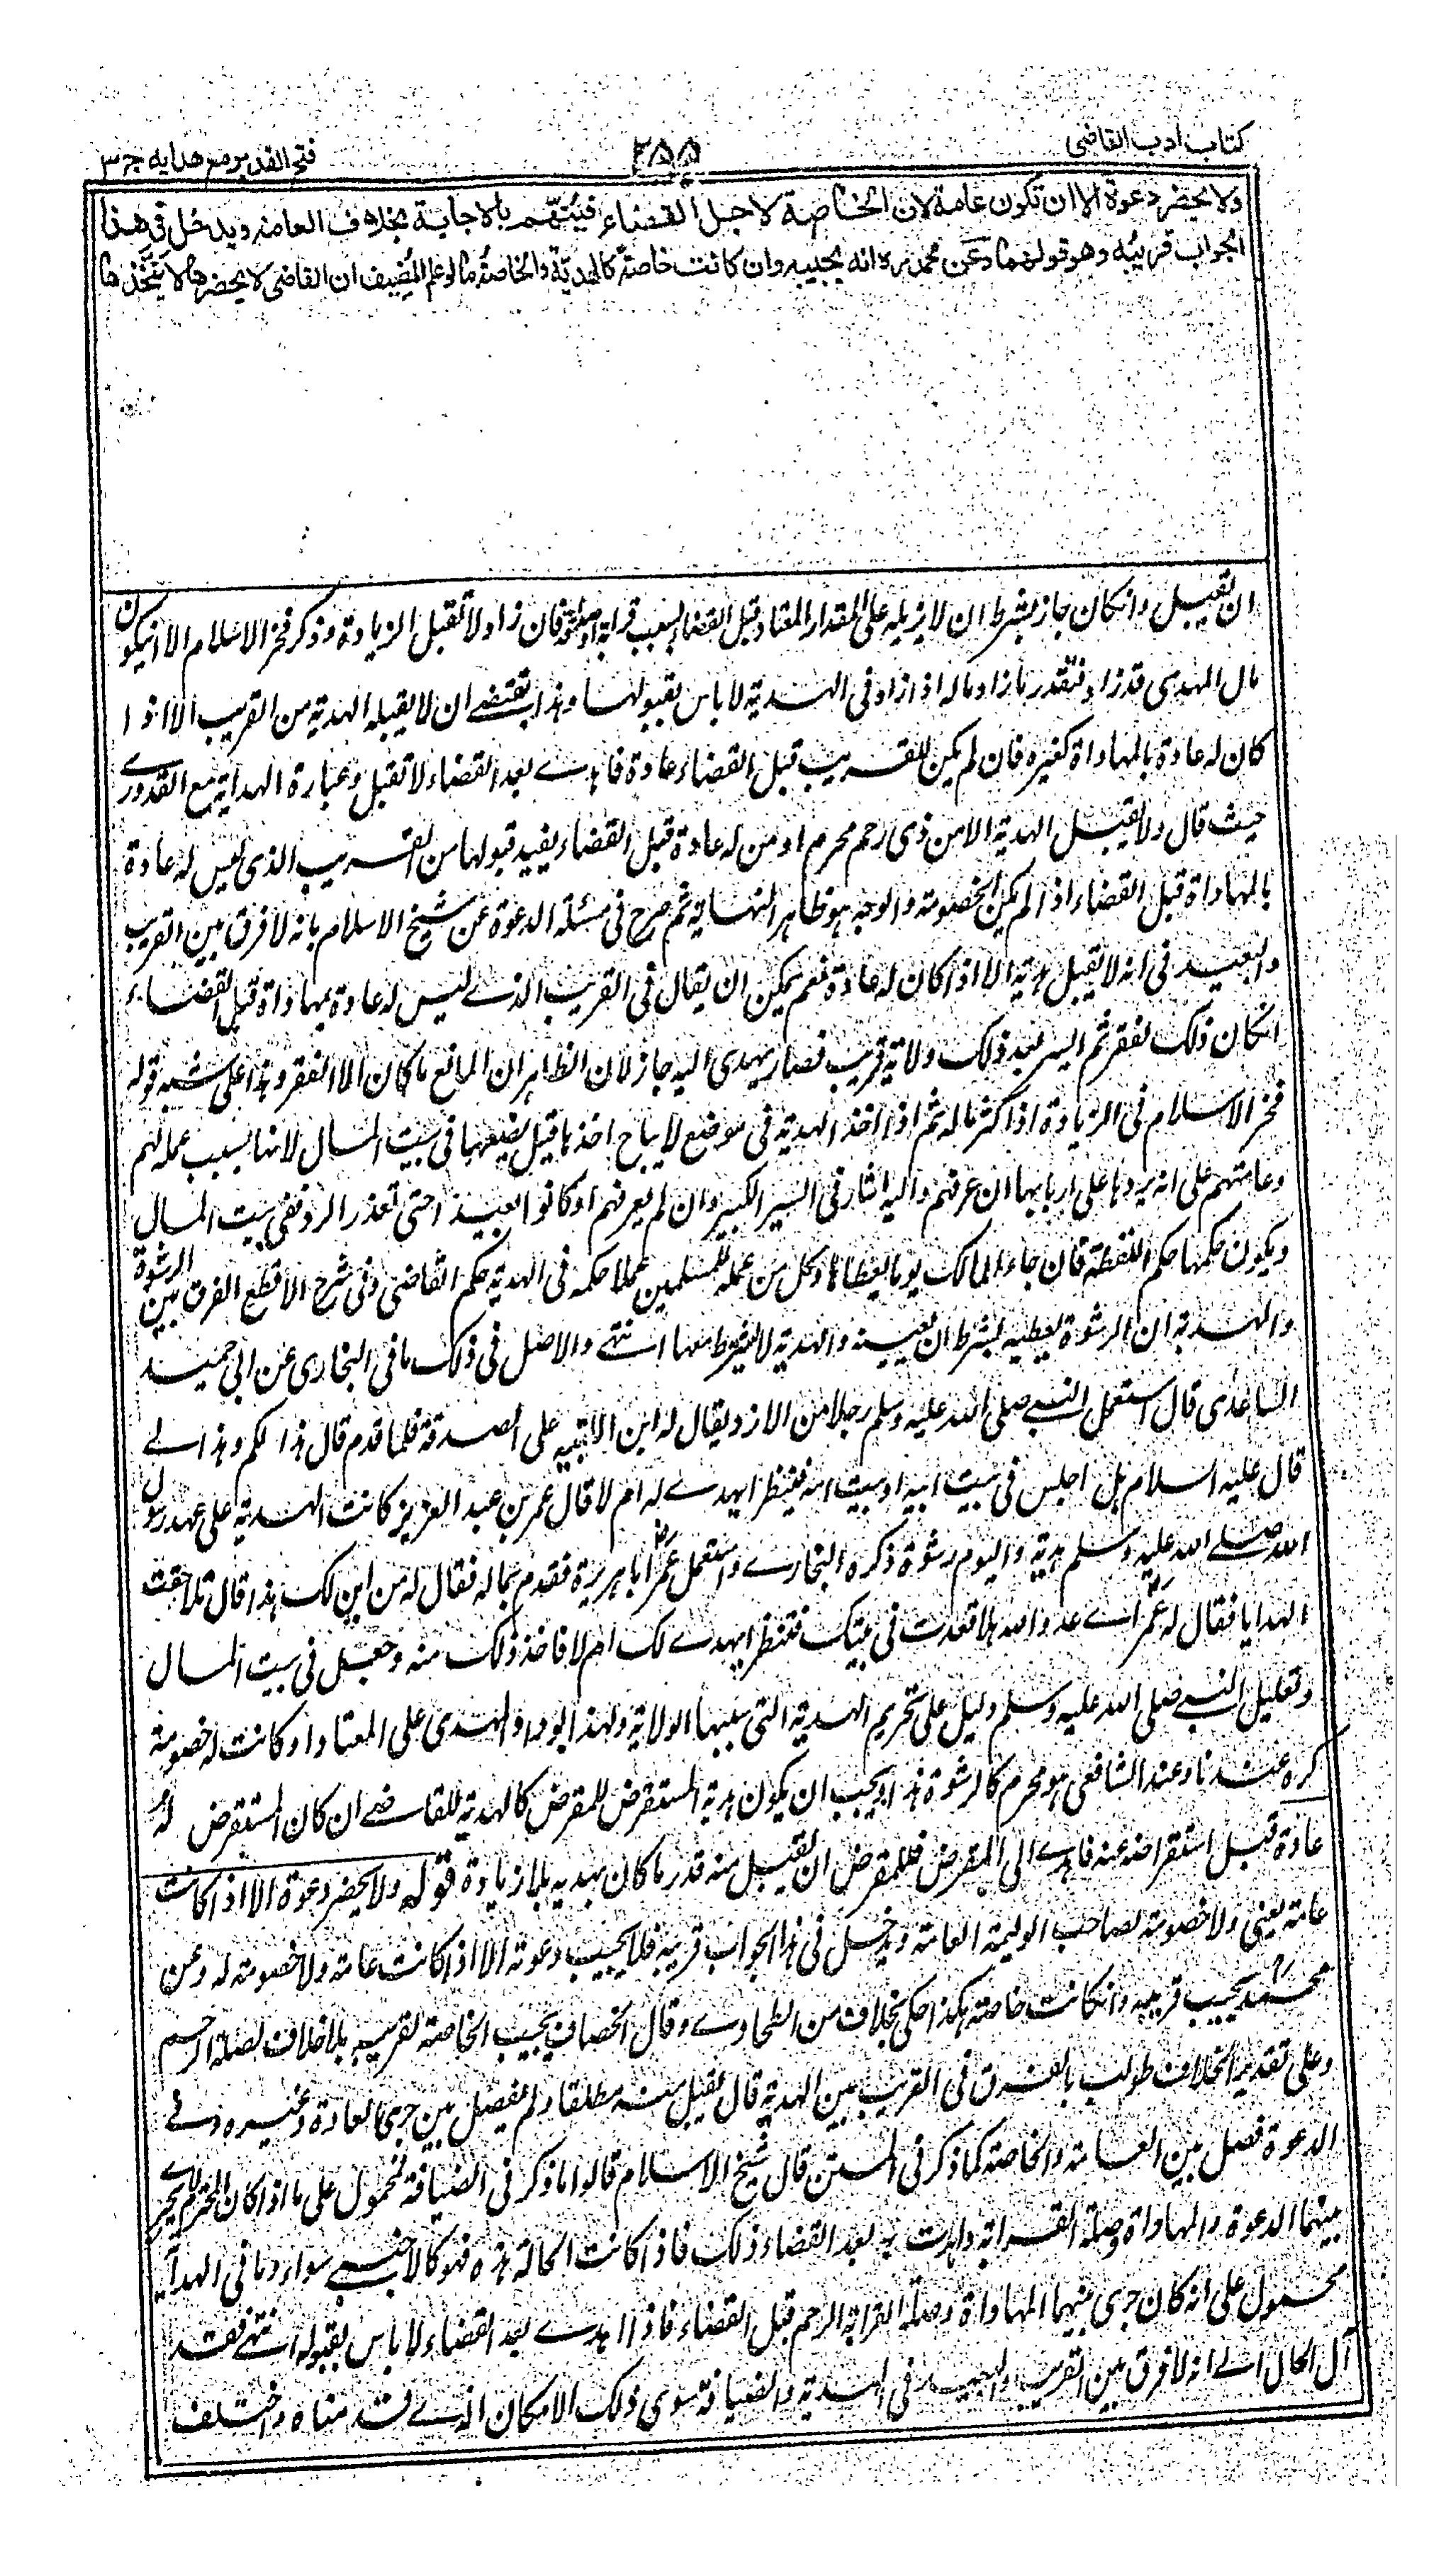 كتاب ادب القاضى
٢٥٥
فتح القدير مع هدايه ج ٣
ولا يحضر دعوة الا ان تكون عامة لان الخاصة لاجل القضاء فيتهم بالاجابة بخلاف العامة ويدخل فى هذا
الجواب قريبه وهو قولهما وعن محمد ره انه يجيبه وان كانت خاصة كالهدية والخاصة ما لو علم المضيف ان القاضى لا يحضرها لا يتخذها
ان يقبل وانكان جاز بشرط ان لا يزيد على المقدار المعتاد قبل القضاء بسبب قرابة او صداقة فان زاد لا تقبل الزيادة وذكر فخر الاسلام الا ان يكون
مال المهدى قد زاد فبقدر ما زاد ماله اذا زاد فى الهدية لا باس بقبولها وهذا يقتضے ان لا يقبل الهدية من القريب الا اذا
كان له عادة بالمهاداة كغيره فان لم يكن للقريب قبل القضاء عادة فاهدے بعد القضاء لا تقبل وعبارة الهداية مع القدورے
حيث قال ولا يقبل الهدية الا من ذى رحم محرم او من له عادة قبل القضاء يفيد قبولها من القريب الذى ليس له عادة
بالمهاداة قبل القضاء اذا لم يكن خصومة والوجه هو ظاهر النهاية ثم صرح فى مسئلة الدعوة عن شيخ الاسلام بانه لا فرق بين القريب
والبعيد فى انه لا يقبل هدية الا اذا كان له عادة نعم يمكن ان يقال فى القريب الذے ليس له عادة بمهاداة قبل القضاء
انكان ذلك لفقر ثم ايسر بعد ذلك ولاية قريب فصار يهدى اليه جاز لان الظاهر ان المانع ما كان الا الفقر وهذا على شبه قوله
فخر الاسلام فى الزيادة اذا كثر ماله ثم اذا اخذ الهدية فى موضع لا يباح اخذها قيل يضعها فى بيت المال لانها بسبب عمله لهم
وعامتهم على انه يردها على اربابها ان عرفهم واليه اشار فى السير الكبير وان لم يعرفهم او كانوا بعيدا حتى تعذر الرد ففى بيت المال
ويكون حكمها حكم اللقطة فان جاء المالك يوما يعطاها وكل من عمله للمسلمين عملا حكمه فى الهدية حكم القاضى وفى شرح الاقطع الفرق بين الرشوة
والهدية ان الرشوة يعطيه بشرط ان يعينه والهدية لا شرط معها انتهے والاصل فى ذلك ما فى البخارى عن ابى حميد
الساعدى قال استعمل النبے صلى الله عليه وسلم رجلا من الازد يقال له ابن الاتبية على الصدقة فلما قدم قال هذا لكم وهذا لے
قال عليه السلام هل اجلس فى بيت ابيه او بيت امه فينظر ايهدے له ام لا قال عمر بن عبد العزيز كانت الهدية على عهد رسول
الله صلے الله عليه وسلم هدية واليوم رشوة ذكره البخارے واستعمل عمر ابا هريرة فقدم بمال فقال له من اين لك هذا قال تلاحقت
الهدايا فقال له عمر اے عدو الله هلا قعدت فى بيتك فتنظر ايهدے لك ام لا فاخذ ذلك منه وجعل فى بيت المال
وتعليل النبے صلى الله عليه وسلم دليل على تحريم الهدية التى سببها الولاية ولهذا لو زاد المهدى على المعتاد او كانت له خصومة
كره عندنا وعند الشافعى هو محرم كالرشوة هذا ويجب ان يكون هدية المستقرض للمقرض كالهدية للقاضے ان كان المستقرض له
عادة قبل استقراضه عنه فاهدے الى المقرض فللمقرض ان يقبل منه قدر ما كان يهديه بلا زيادة قوله ولا يحضر دعوة الا اذا كانت
عامة يعنى ولا خصومة لصاحب الوليمة العامة ويدخل فى هذا الجواب قريبه فلا يجيب دعوته الا اذا كانت عامة ولا خصومة له وعن
محمد يجيب قريبه وانكانت خاصة هكذا حكى بخلاف من الطحاوے وقال الخصاف يجيب الخاصة لقريبه بلا خلاف لصلة الرحم
وعلى تقدير الخلاف طولب بالفرق فى القريب بين الهدية قال يقبل منه مطلقا ولم يفصل بين جرى العادة وغيره وفے
الدعوة فصل بين العامة والخاصة كما ذكر فى المتن قال شيخ الاسلام قالوا ما ذكر فى الضيافة محمول على ما اذا كان المحرم لم يجر
بينهما الدعوة والمهاداة وصلة القرابة واحدث به بعد القضاء ذلك فاذا كانت الحالة هذه فهو كالاجنبے سواء وما فى الهداية
محمول على انه كان جرى بينهما المهاداة وصلة القرابة الرحم قبل القضاء فاذا اهدے بعد القضاء لا باس بقبوله انتهے فقد
آل الحال الے انه لا فرق بين القريب والبعيد فى الهدية والضيافة سوى ذلك الامكان الذے قدمناه واختلف